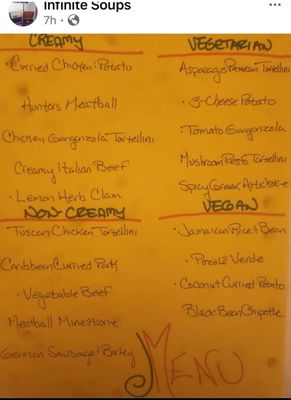 Infinite Soups
7h ·
CREAMY
· Curried Chicken & Potato
Hunters Meatball
Chicken Gorgonzola Tortellini
Creamy Italian Beef
· Lemon Herb Clam
NON-CREAMY
Tuscan Chicken Tortellini
Caribbean Curried Pork
· Vegetable Beef
Meatball Minestrone
German Sausage & Barley
VEGETARIAN
Asparagus Parmesan Tortellini
· 3-Cheese Potato
· Tomato Gorgonzola
Mushroom Pesto Tortellini
Spicy Greek Artichoke
VEGAN
· Jamaican Rice & Bean
· Pozole Verde
· Coconut Curried Potato
Black Bean Chipotle
MENU